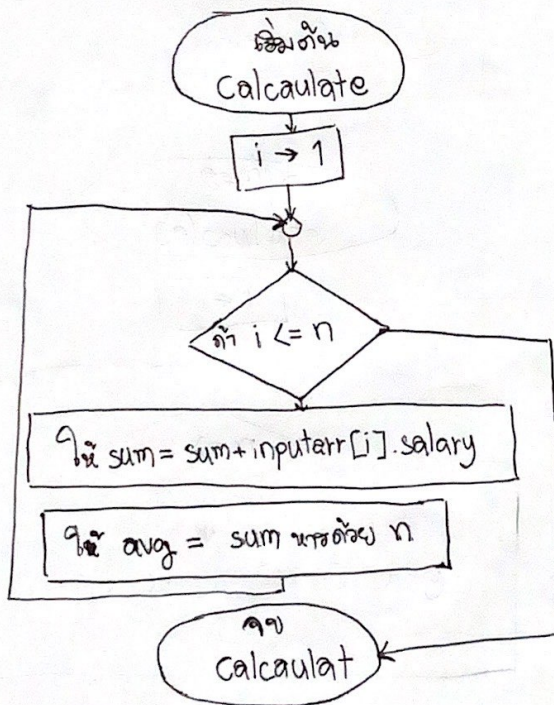 เริ่มต้น
Calcaulate
i → 1
ถ้า i <= n
ให้ sum = sum + inputarr[i].salary
ให้ avg = sum หารด้วย n
จบ
Calcaulat